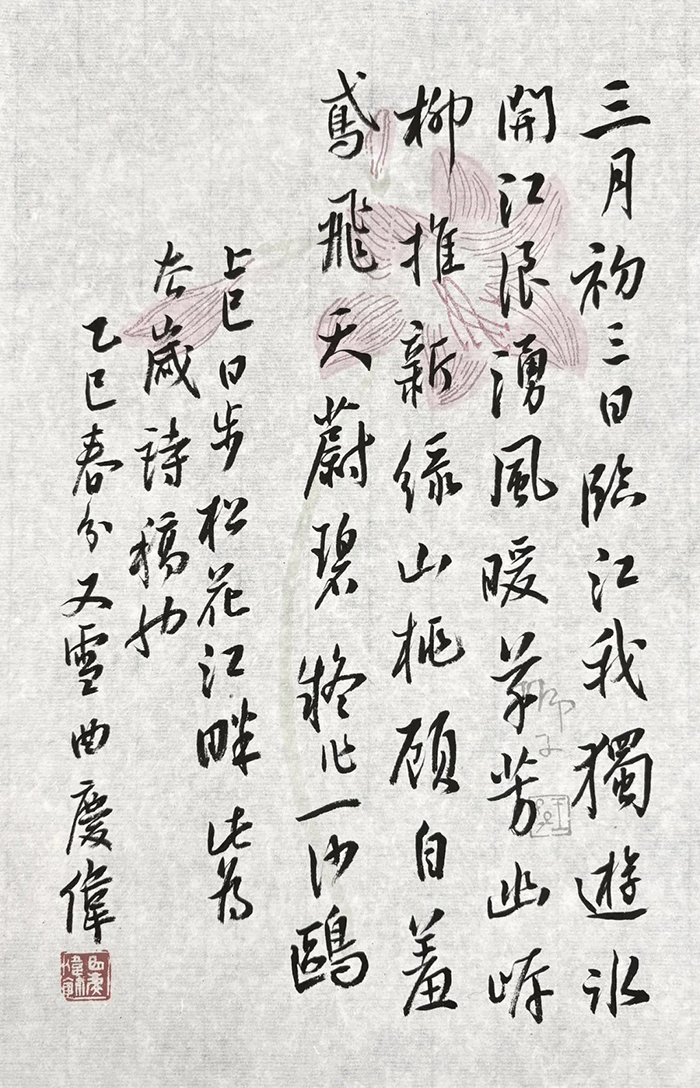 三月初三日臨江我獨遊冰
開江浪湧風暖草芳幽岸
柳推新綠山桃顧自羞
鳶飛天蔚碧疑化一沙鷗
上巳日步松花江畔此为
去歲詩稿也
乙巳春分又雪曲慶偉